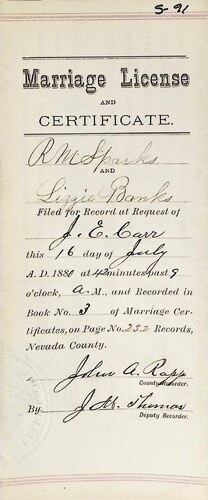 S-91
Marriage License
AND
CERTIFICATE.
R M Sparks
AND
Lizzie Banks
Filed for Record at Request of
J. E. Carr
this 16 day of July
A. D. 1881 at 42 minutes past 9
o'clock, A. M., and Recorded in
Book No. 3 of Marriage Cer-
tificates, on Page No. 252 Records,
Nevada County.
John A. Rapp
County Recorder.
By J. M. Thomas
Deputy Recorder.